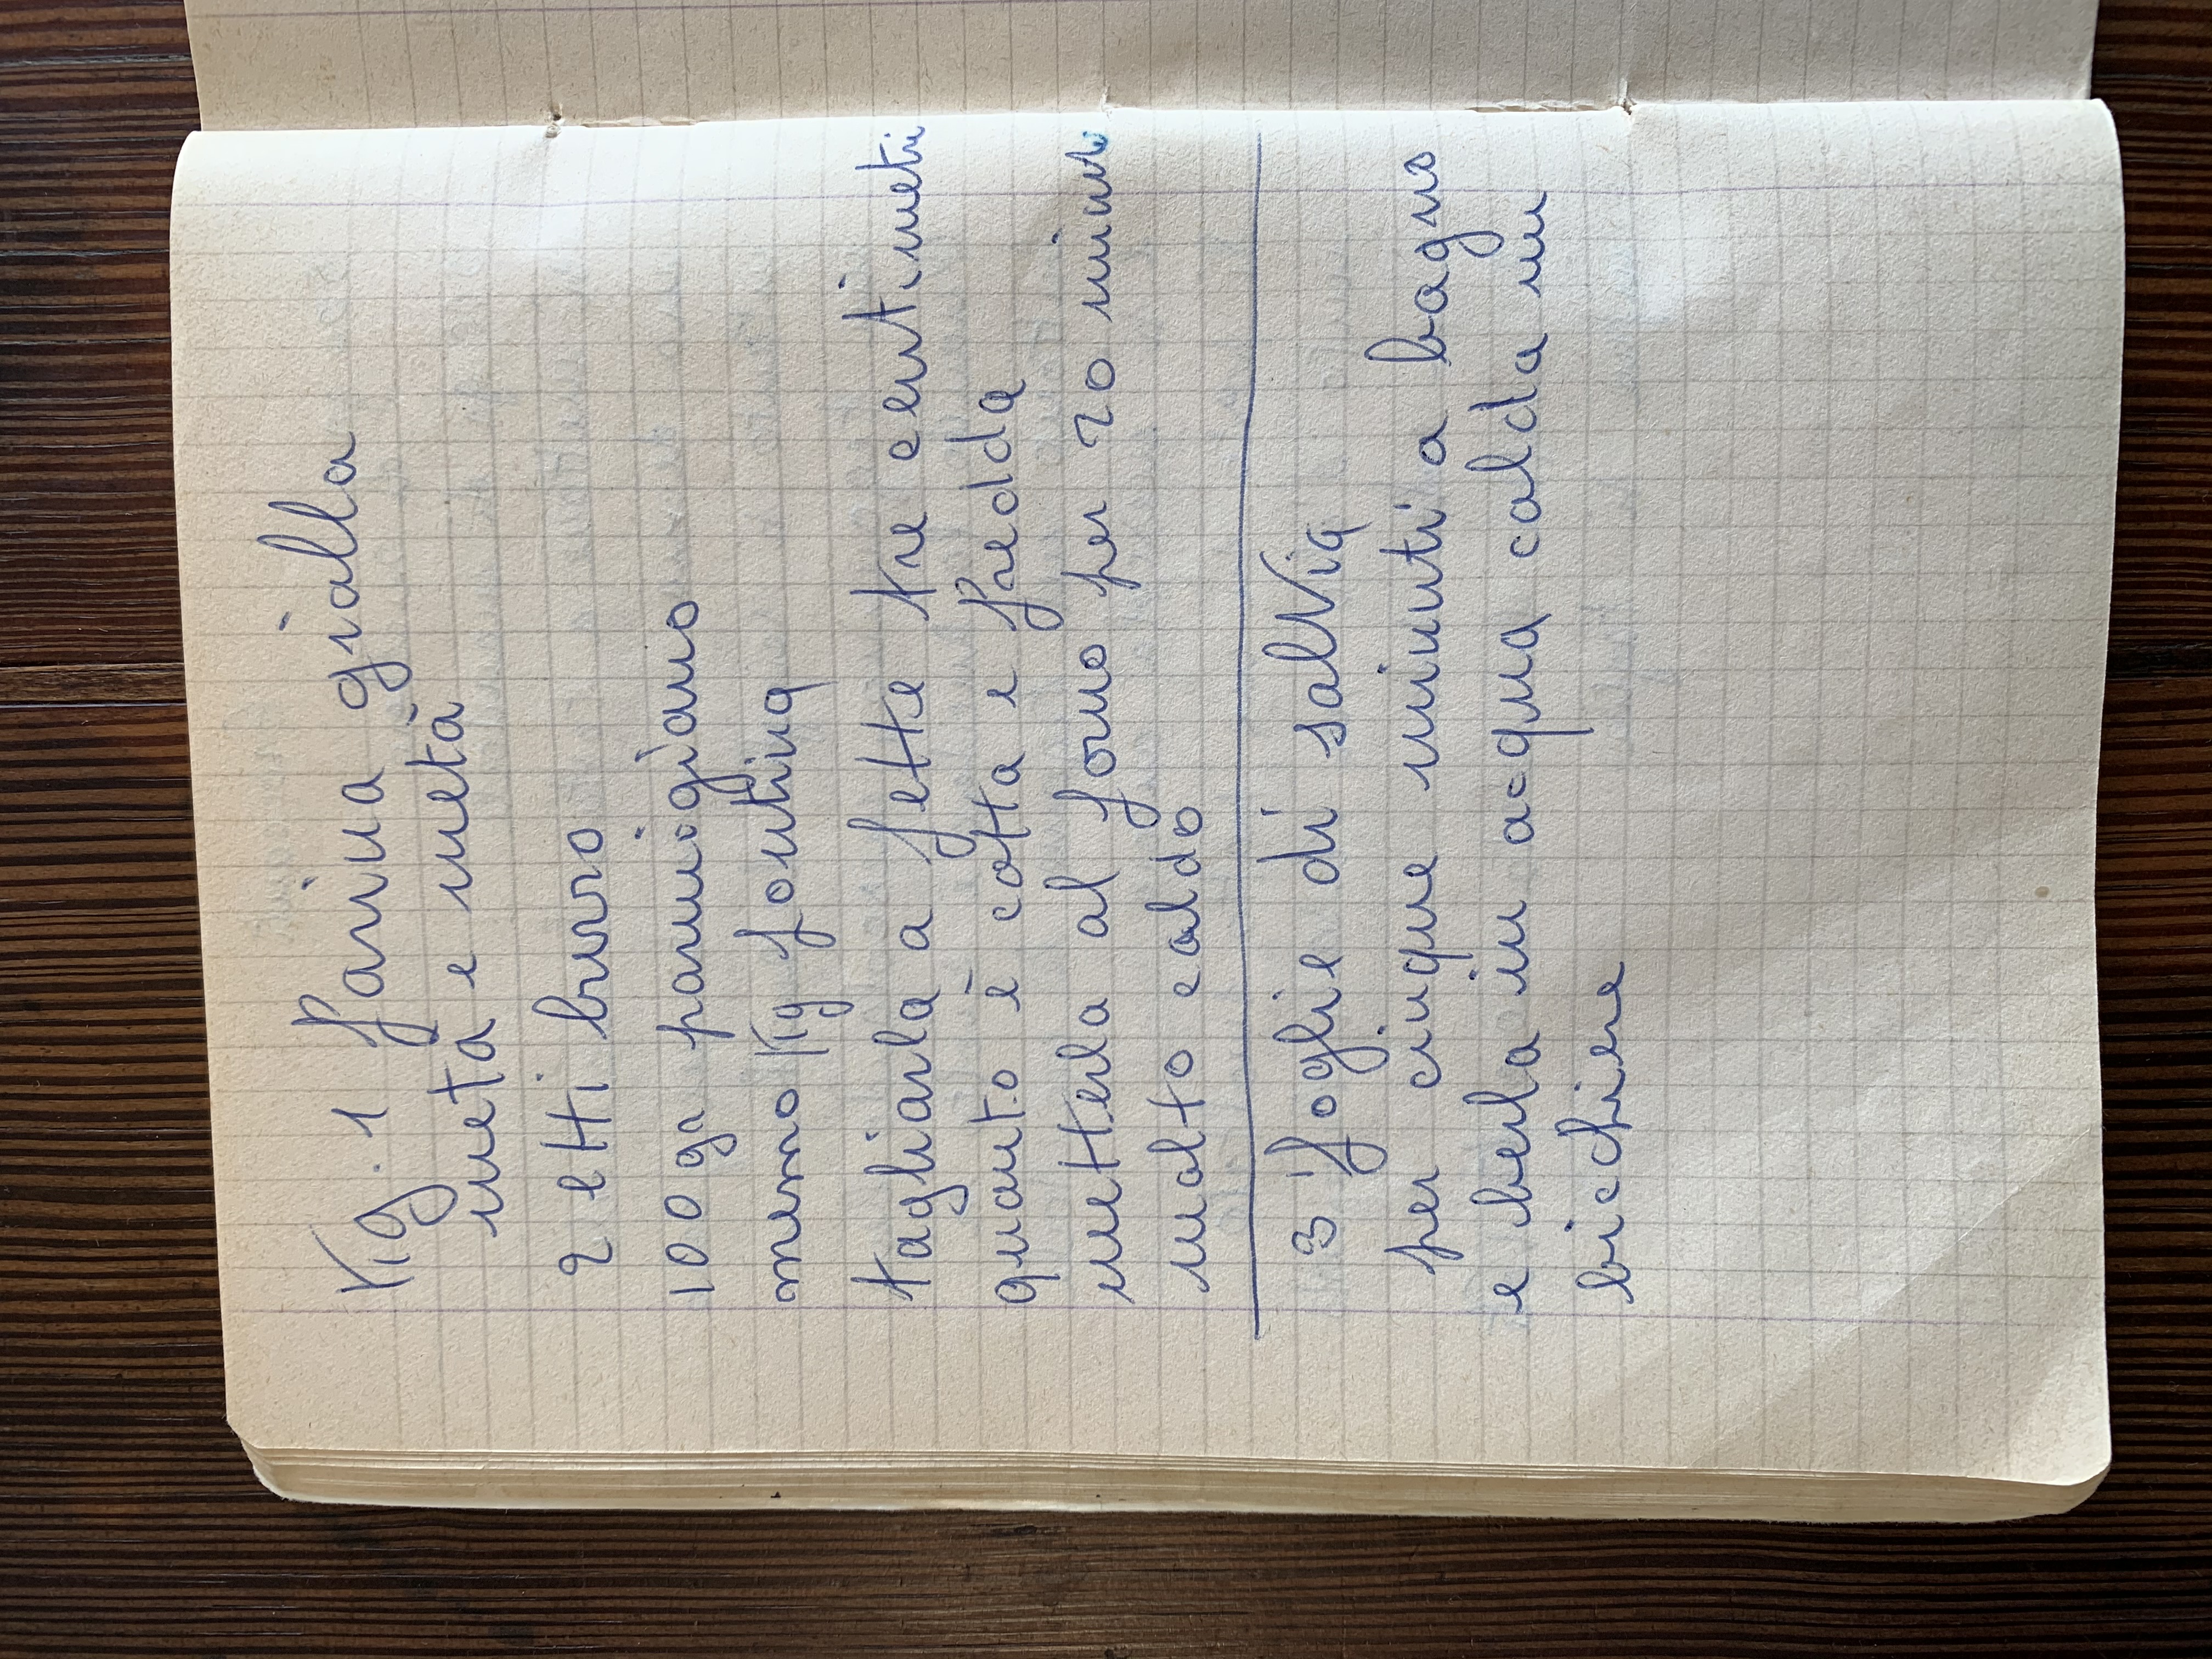 Kg. 1 farina gialla
metà e metà
2 etti burro
100 gr parmigiano
memo Kg fontina
tagliarla a fette tre centimetri
quanto è cotta e fredda
metterla al forno per 20 minuti
molto caldo
3 foglie di salvia
per cinque minuti a bagno
e berla in acqua calda un
bicchiere